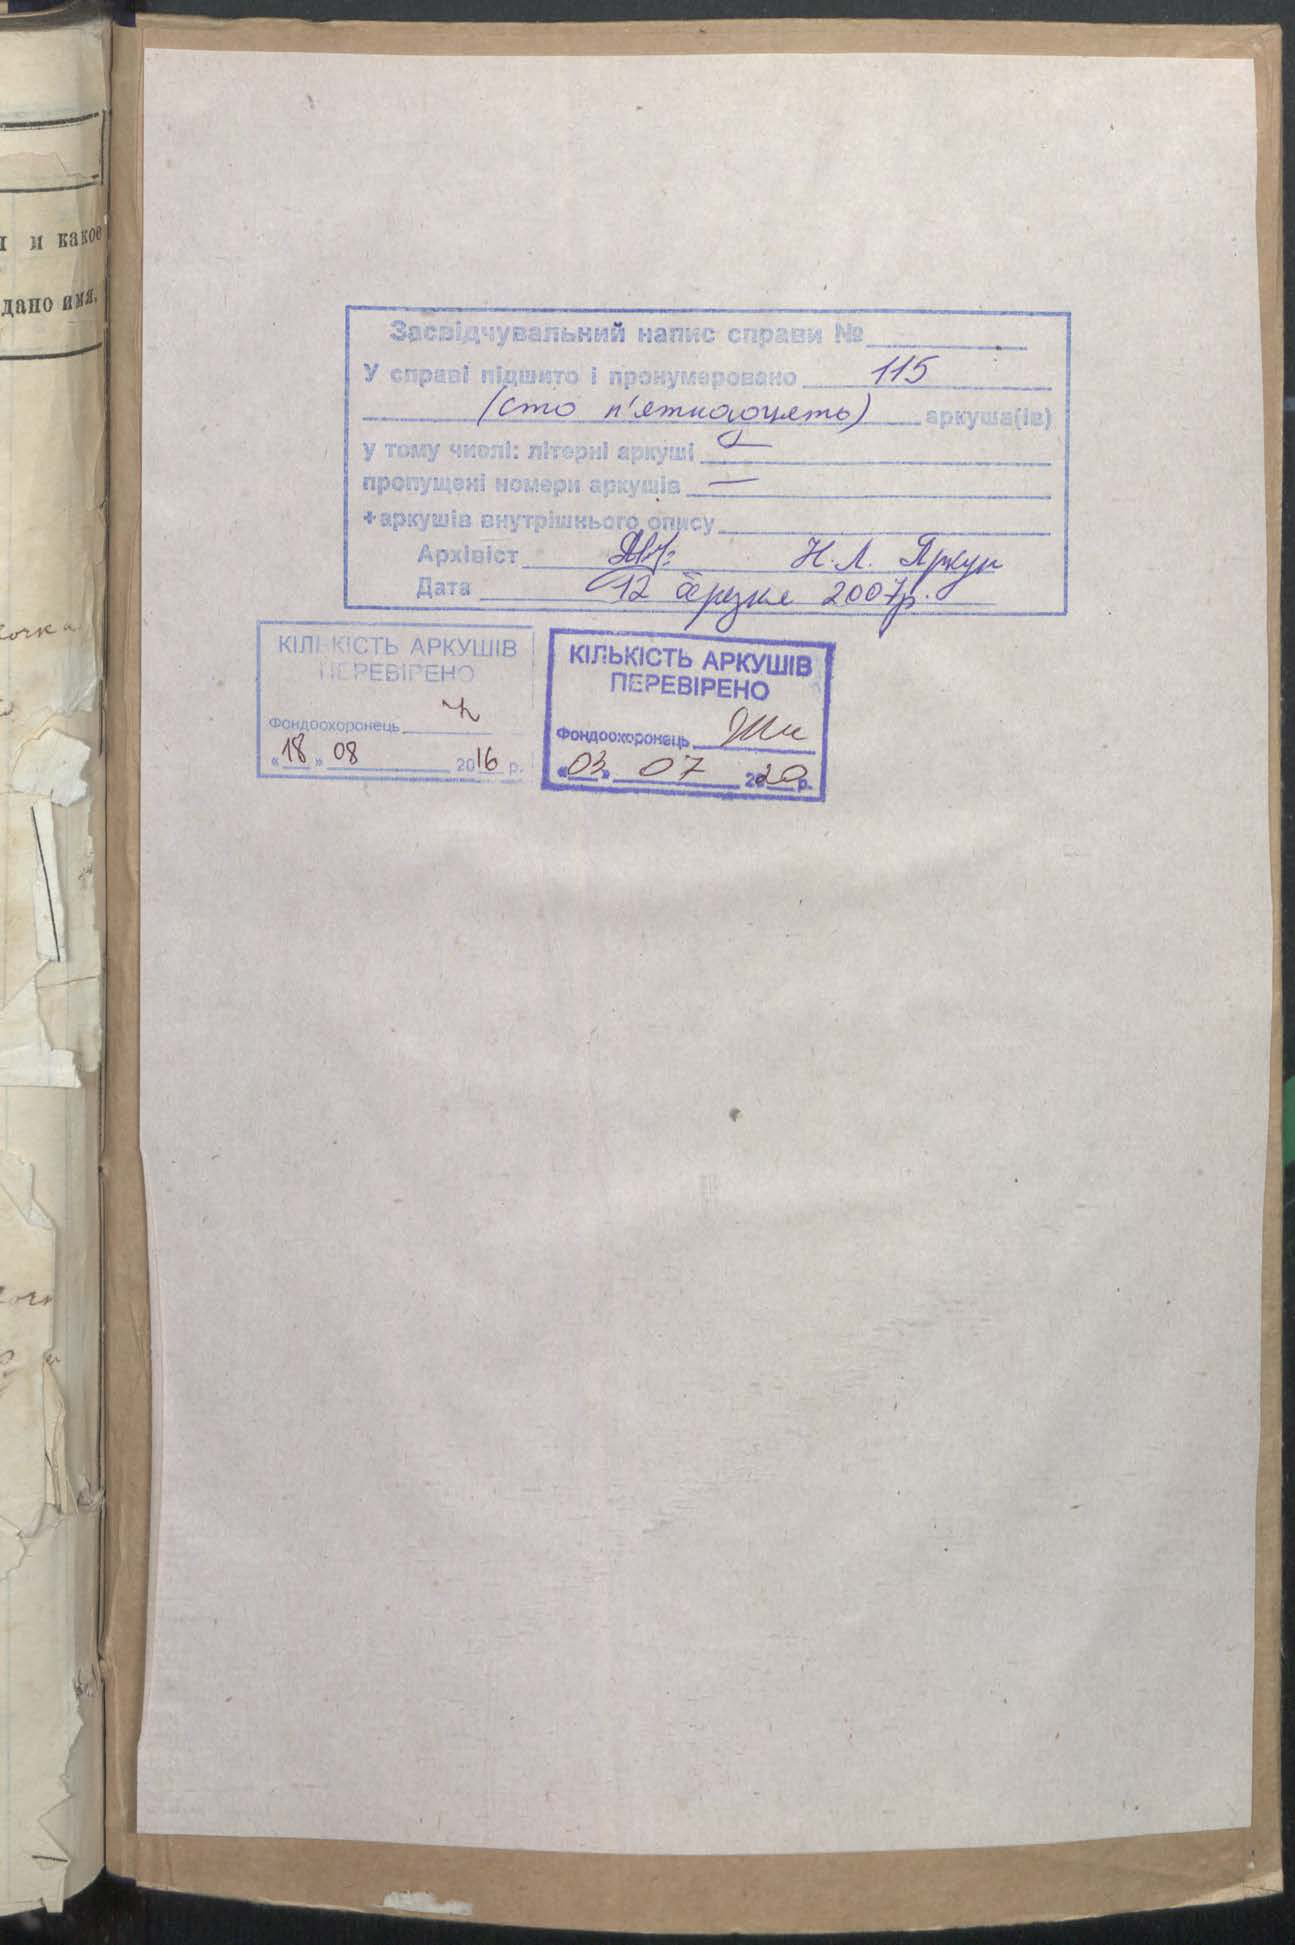 и какое
дано имя.
Засвідчувальний напис справи №
У справі підшито і пронумеровано 115
(сто п'ятнадцять) аркуша(ів)
у тому числі: літерні аркуші —
пропущені номери аркушів —
+аркушів внутрішнього опису
Архівіст Н. Л. Яркун
Дата 12 березня 2007р.
КІЛЬКІСТЬ АРКУШІВ
ПЕРЕВІРЕНО
Фондоохоронець
«18» 08 2016 р.
КІЛЬКІСТЬ АРКУШІВ
ПЕРЕВІРЕНО
Фондоохоронець
«03» 07 2020 р.